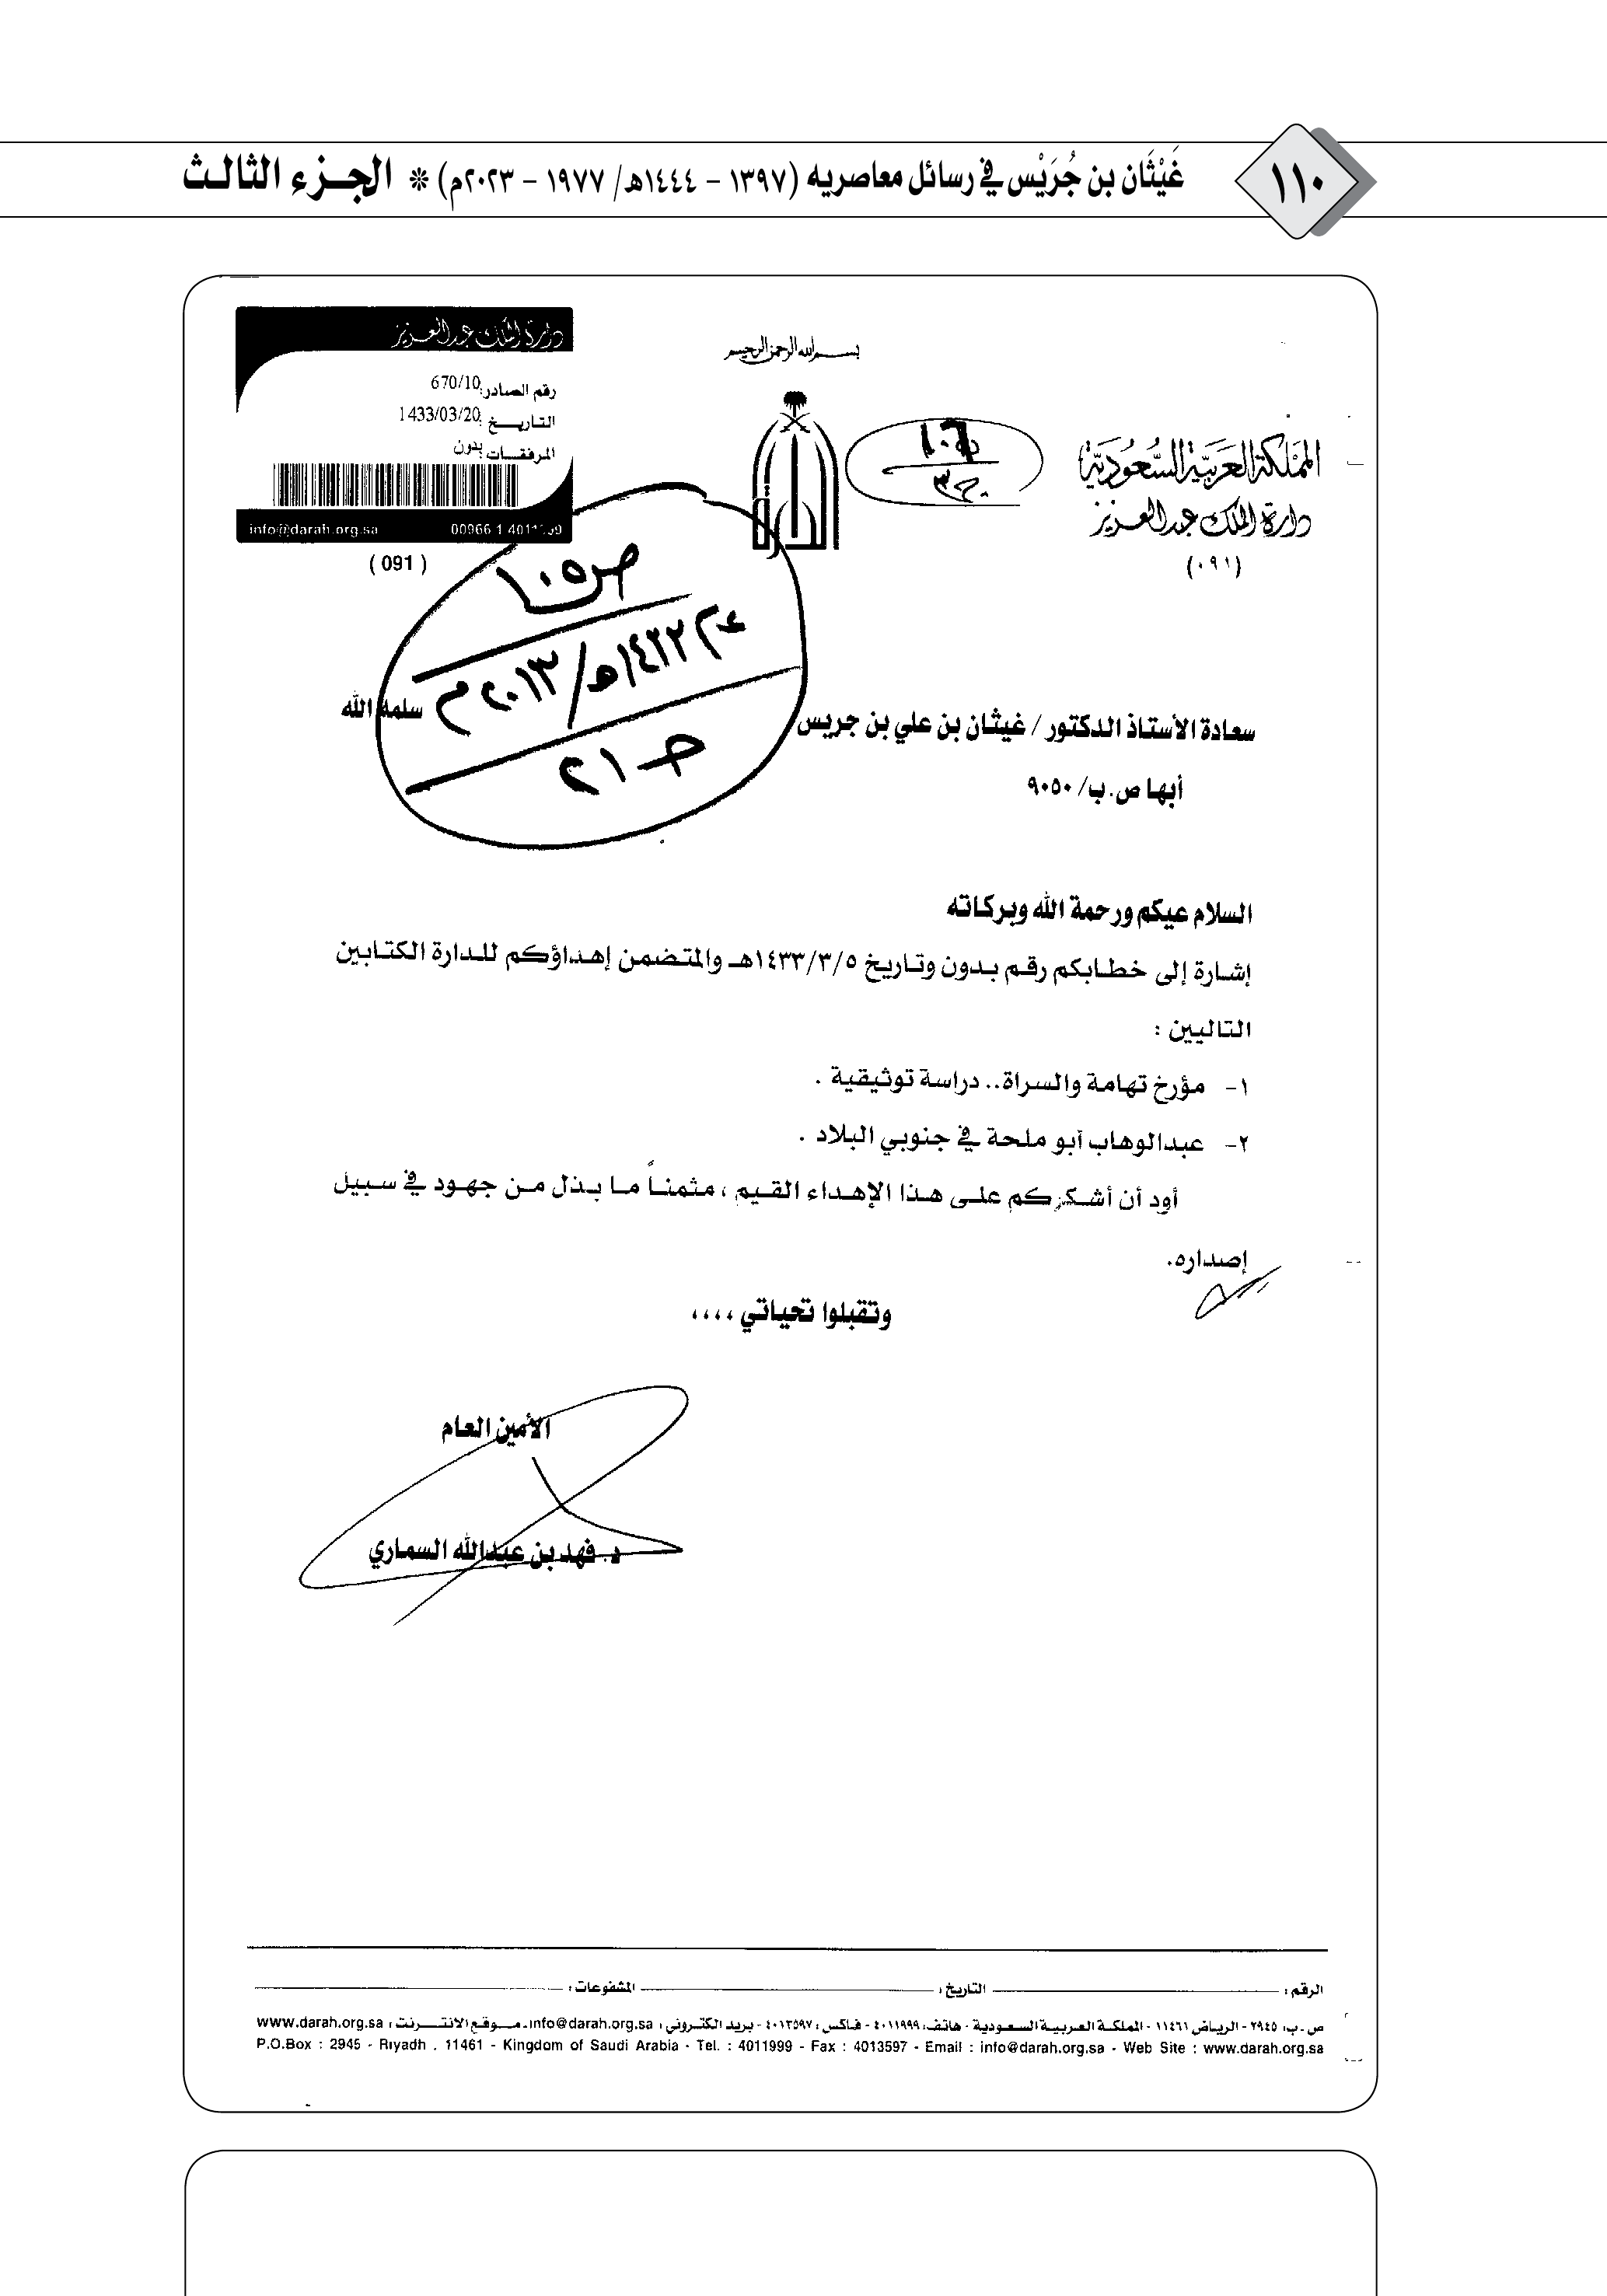 ١١٠
غَيْثَان بن جُرَيْس في رسائل معاصريه (١٣٩٧ – ١٤٤٤هـ/ ١٩٧٧ – ٢٠٢٣م) * الجزء الثالث
بسم الله الرحمن الرحيم
المملكة العربية السعودية
دارة الملك عبدالعزيز
(٠٩١)
دارة الملك عبدالعزيز
رقم الصادر: 670/10
التاريخ: 1433/03/20
المرفقات: بدون
info@darah.org.sa 00966 1 4011999
( 091 )
ص١٠٥
٢٠١٣م
ج٢١
سعادة الأستاذ الدكتور / غيثان بن علي بن جريس سلمه الله
أبها ص.ب/ ٩٠٥٠
السلام عيكم ورحمة الله وبركاته
إشارة إلى خطابكم رقم بدون وتاريخ ١٤٣٣/٣/٥هـ والمتضمن إهداؤكم للدارة الكتابين
التاليين :
١- مؤرخ تهامة والسراة.. دراسة توثيقية .
٢- عبدالوهاب أبو ملحة في جنوبي البلاد .
أود أن أشكركم على هذا الإهداء القيم ، مثمناً ما بذل من جهود في سبيل
إصداره.
وتقبلوا تحياتي ،،،،
الأمين العام
د. فهد بن عبدالله السماري
الرقم : التاريخ : المشفوعات :
ص.ب: ٢٩٤٥ - الرياض ١١٤٦١ - المملكة العربية السعودية - هاتف: ٤٠١١٩٩٩ - فاكس : ٤٠١٣٥٩٧ - بريد الكتروني : info@darah.org.sa - موقع الانترنت : www.darah.org.sa
P.O.Box : 2945 - Riyadh . 11461 - Kingdom of Saudi Arabia - Tel. : 4011999 - Fax : 4013597 - Email : info@darah.org.sa - Web Site : www.darah.org.sa